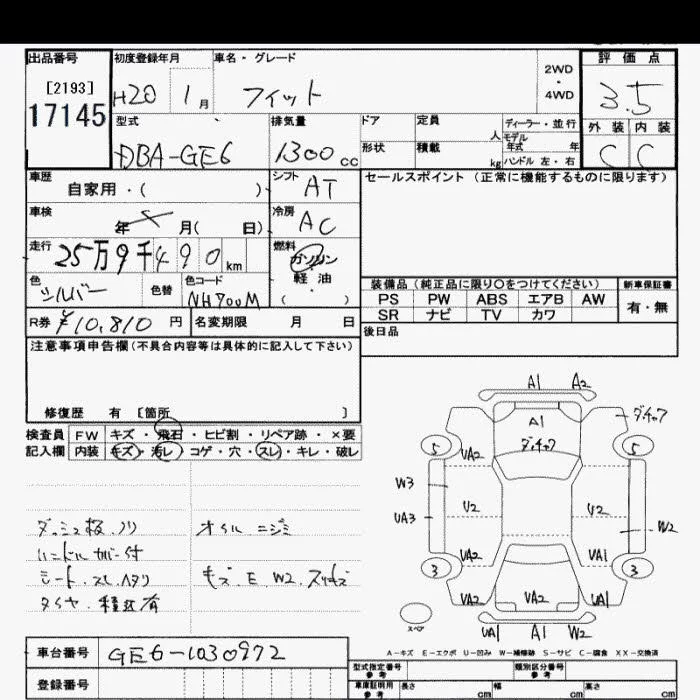 出品番号 初度登録年月 車名・グレード 2WD・4WD 評価点
[2193] H20 1月 フィット 3.5
17145 型式 排気量 ドア 定員 人 ディーラー・並行 外装 内装
DBA-GE6 1300cc 形状 積載 kg モデル年式 年 ハンドル 左・右 C C
車歴 自家用・( ) シフト AT セールスポイント(正常に機能するものに限ります)
車検 年 月( 日) 冷房 AC
走行 25万9千490km 燃料 ガソリン
軽油
( )
色 シルバー 色替 色コード NH700M 装備品(純正品に限り○をつけてください) 新車保証書
PS PW ABS エアB AW 有・無
R券 ¥10,810円 名変期限 月 日 SR ナビ TV カワ
注意事項申告欄(不具合内容等は具体的に記入して下さい) 後日品
修復歴 有 [箇所 ]
検査員 FW キズ・飛石・ヒビ割・リペア跡・×要
記入欄 内装 キズ・汚レ・コゲ・穴・スレ・キレ・破レ
ダッシュ板.ノリ オイルニジミ
ハンドルカバー付
シート.スレ.ヘタリ キズ.E.W2.
タイヤ.種区有
A1 A2
A1 ダチャワ
ダチャワ
5 UA2 5
W3
UA3 U2 U2 W2
UA2 UA1
3 3
UA2 UA2 UA1
スペア UA1 A1 W2
A-キズ E-エクボ U-凹み W-補修跡 S-サビ C-腐食 XX-交換済
車台番号 GE6-1030972
型式指定番号 参考 類別区分番号 参考
登録番号 車庫証明用 参考 長さ cm 幅 cm 高さ cm